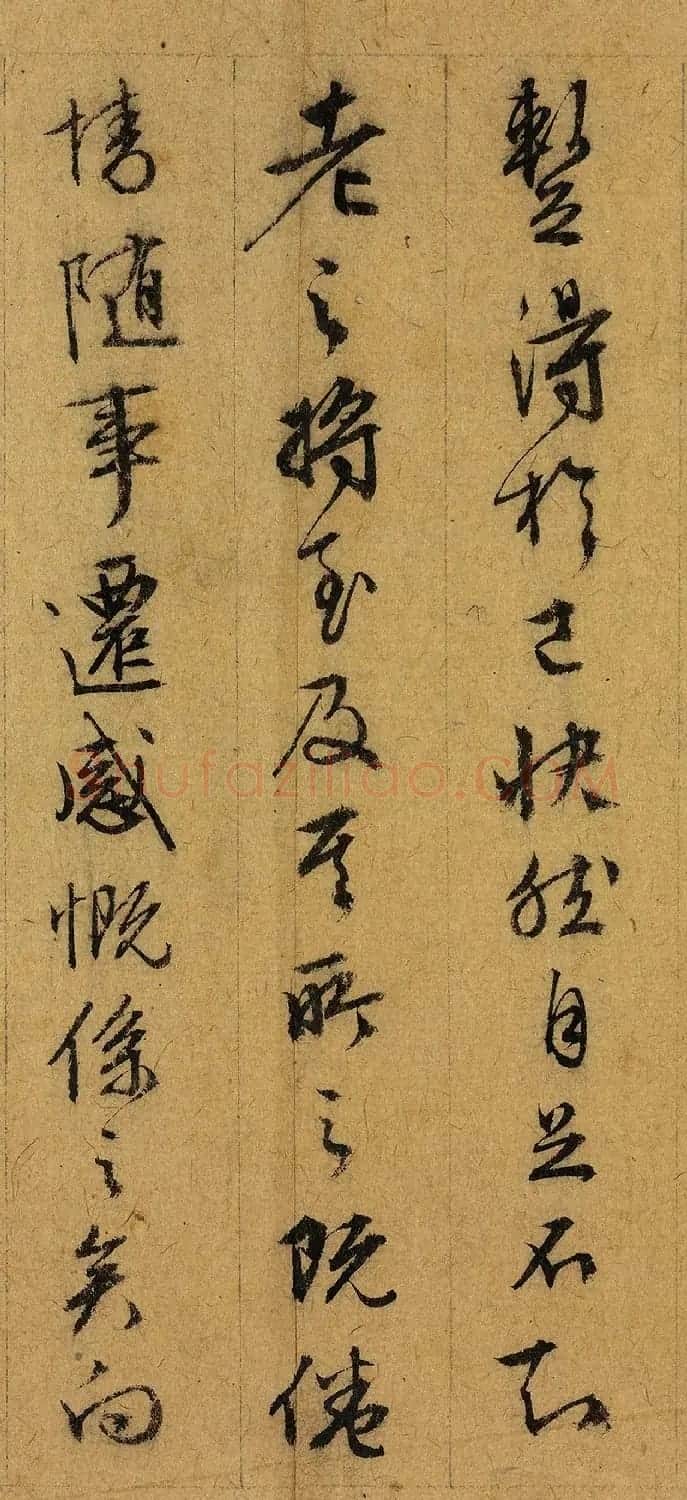 蹔得於己快然自足不知
老之將至及其所之既倦
情隨事遷感慨係之矣向
shufaziliao.COM